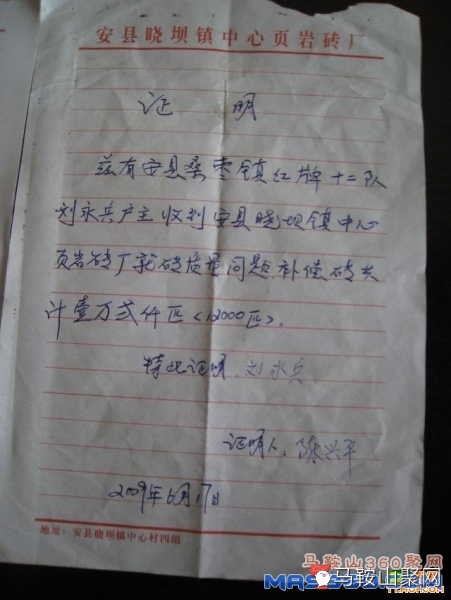 安县晓坝镇中心页岩砖厂
证 明
兹有安县桑枣镇红牌十二队
刘永兵户主收到安县晓坝镇中心
页岩砖厂砖质量问题补偿砖共
计壹万弍仟匹<12000匹>.
特此证明.刘永兵
证明人:陈兴平
2009年6月17日
地址:安县晓坝镇中心村四组
马鞍山360聚网
马鞍山聚网